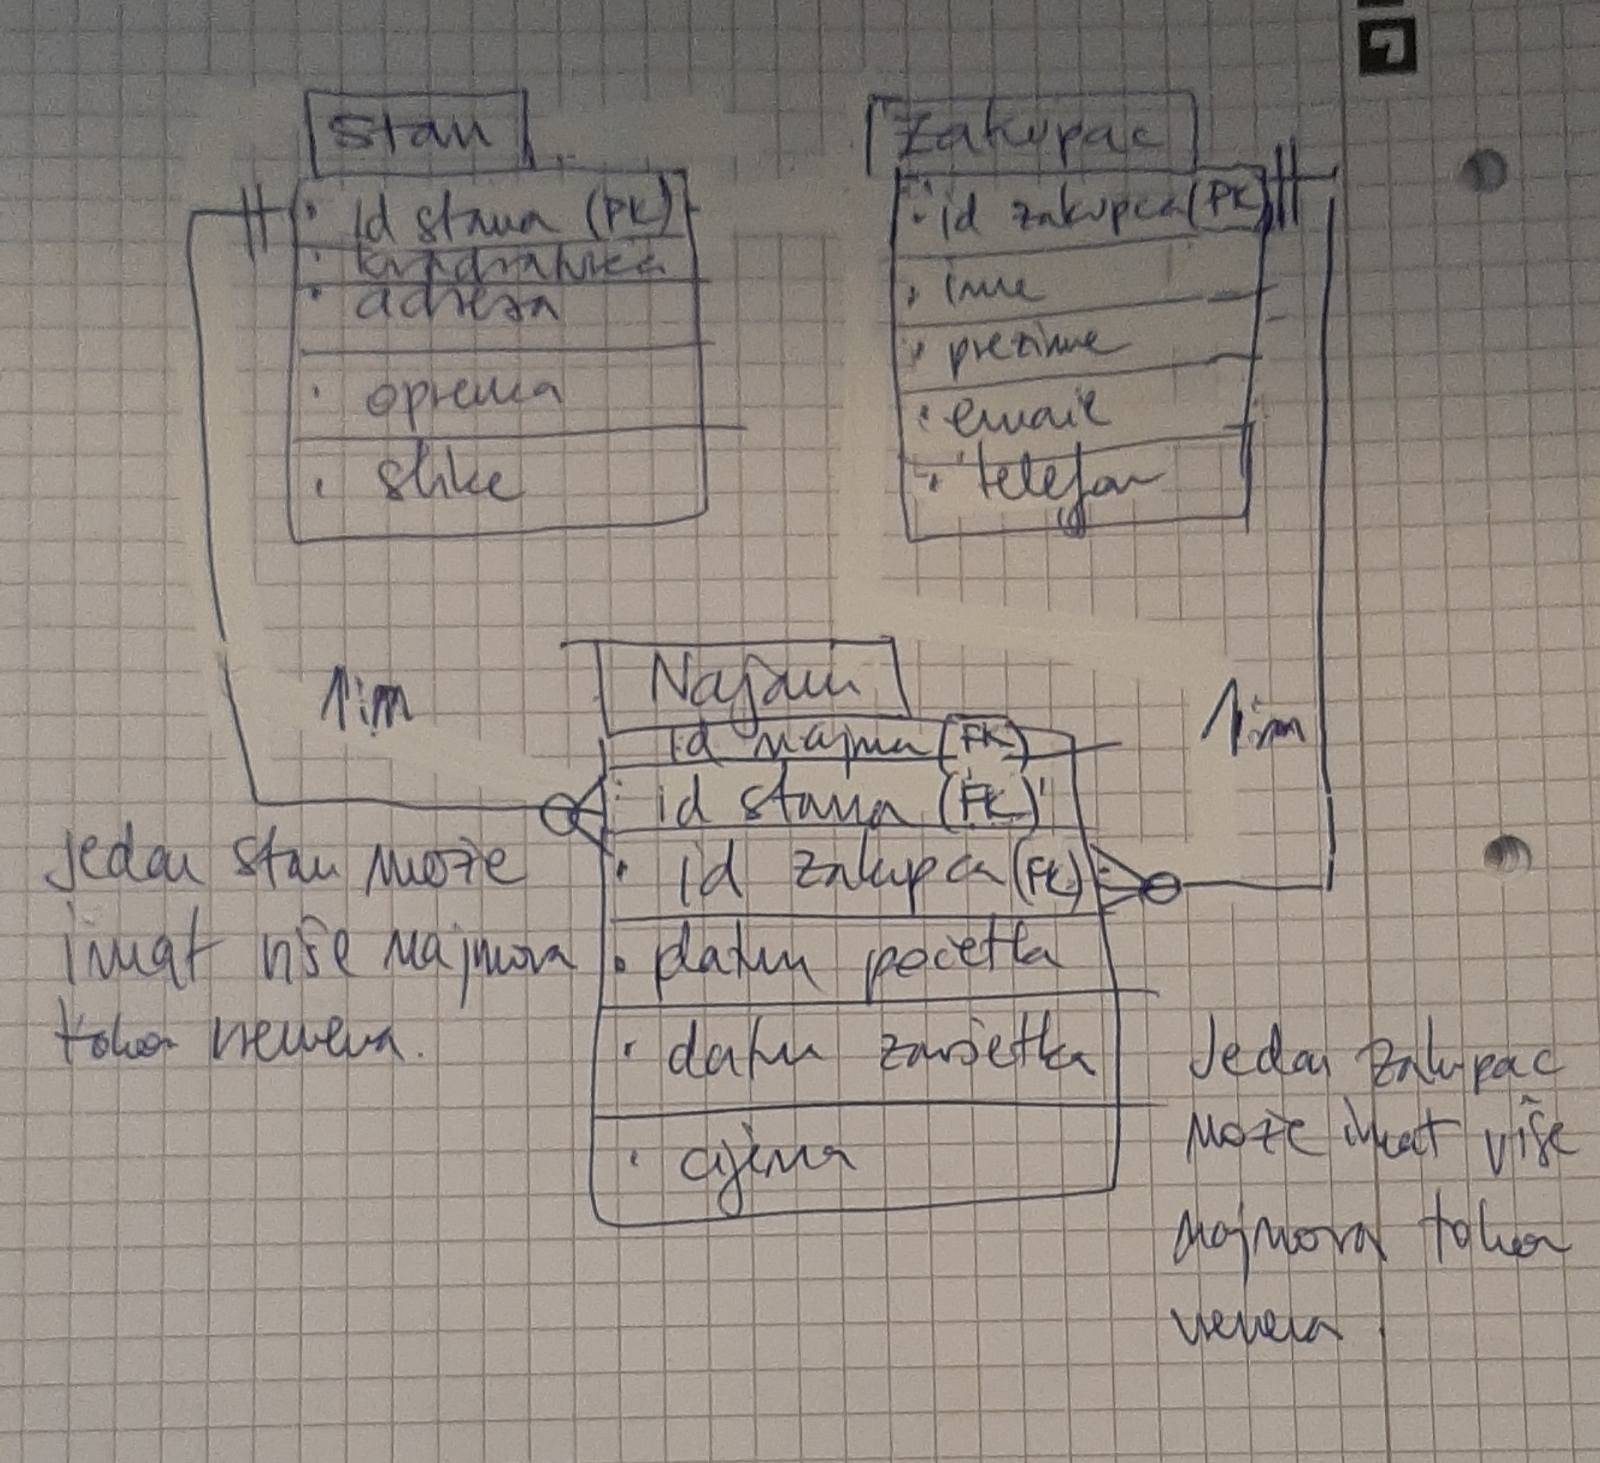 Stan
id stana (PK)
kvadratura
adresa
oprema
slike
Zakupac
id zakupca (PK)
ime
prezime
email
telefon
1:m
Najam
id najma (PK)
id stana (FK)
id zakupca (FK)
datum početka
datum završetka
cijena
1:m
Jedan stan može
imat više najmova
tokom vremena.
Jedan zakupac
može imat više
najmova tokom
vremena.